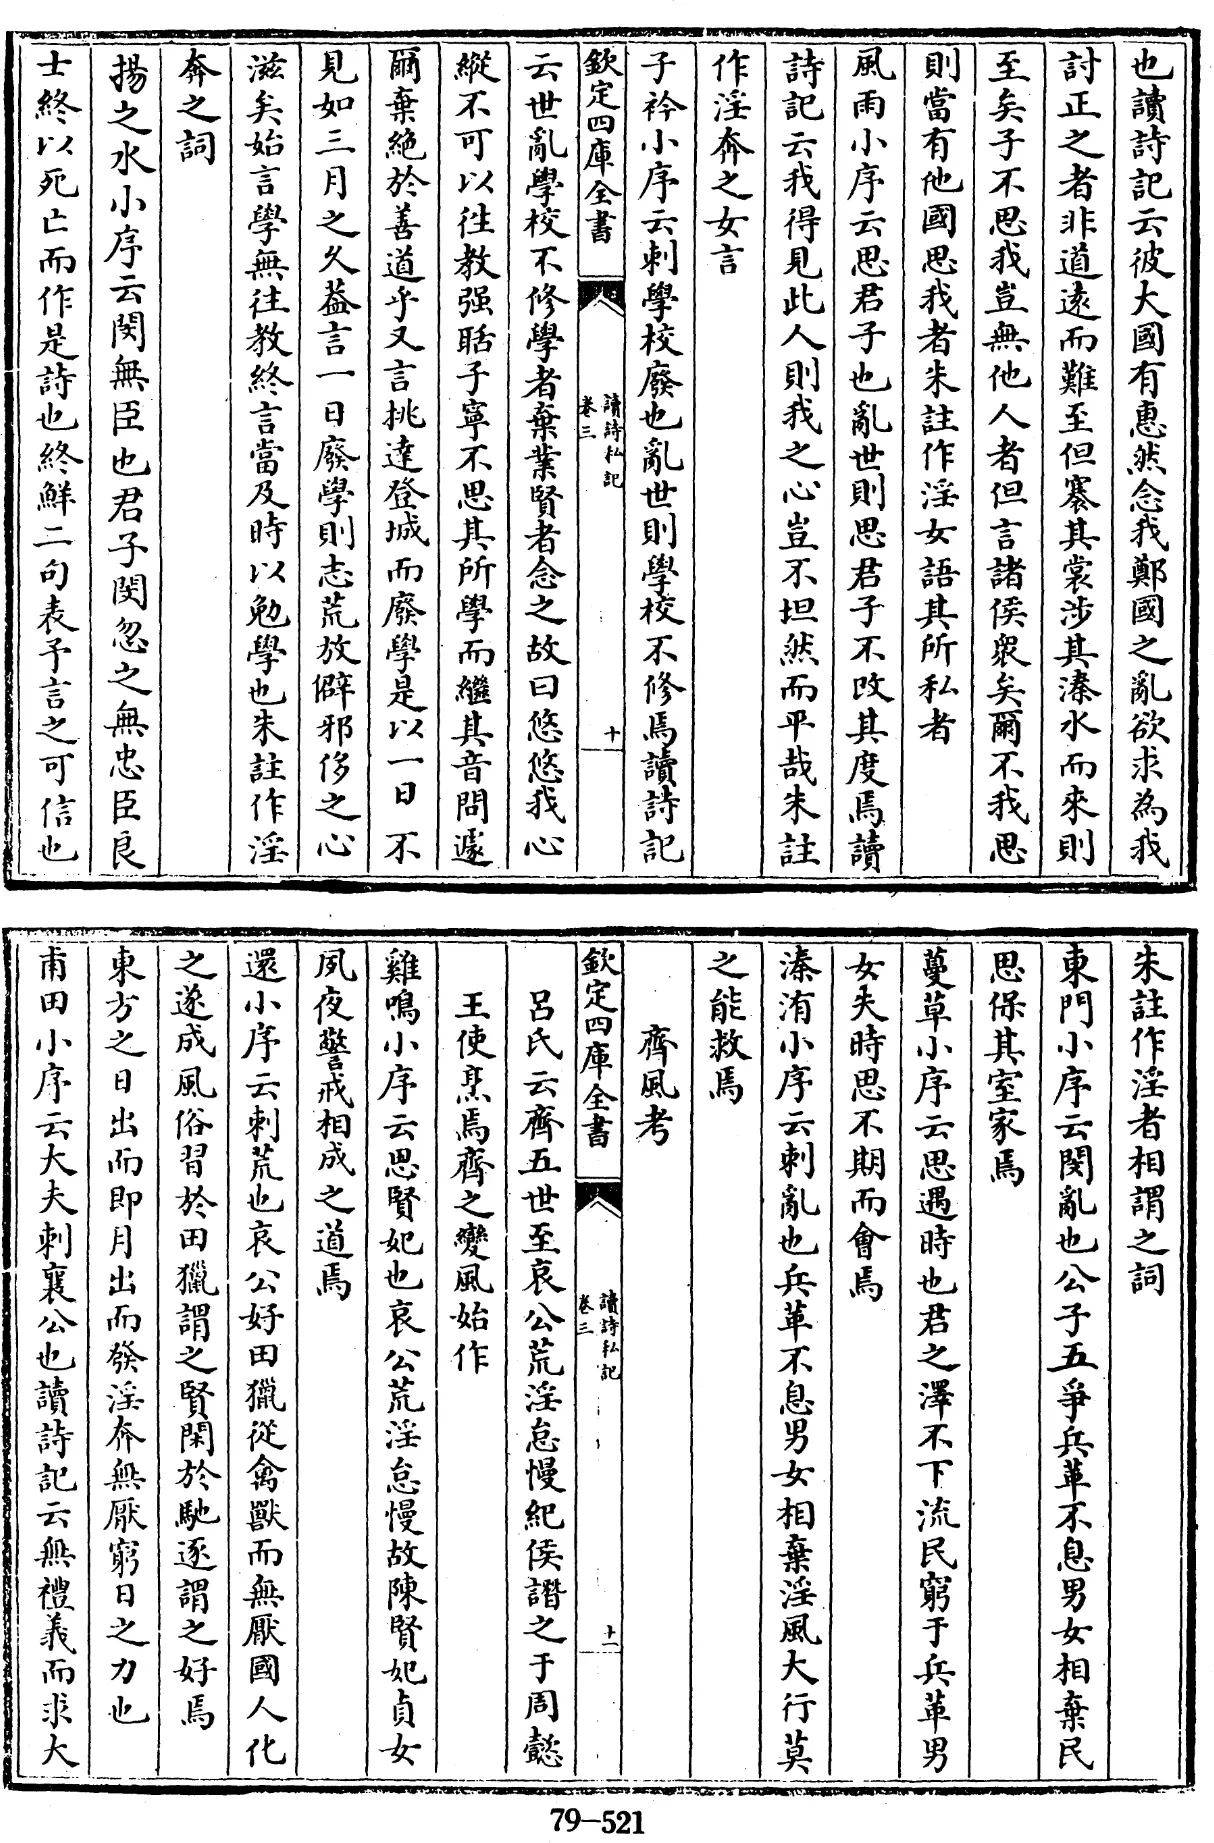 也讀詩記云彼大國有惠然念我鄭國之亂欲求為我
討正之者非道逺而難至但褰其裳涉其溱水而來則
至矣子不思我豈無他人者但言諸侯衆矣爾不我思
則當有他國思我者朱註作淫女語其所私者
風雨小序云思君子也亂世則思君子不改其度焉讀
詩記云我得見此人則我之心豈不坦然而平哉朱註
作淫奔之女言
子衿小序云刺學校廢也亂世則學校不修焉讀詩記
欽定四庫全書
讀詩私記
卷三
十
云世亂學校不修學者棄業賢者念之故曰悠悠我心
縱不可以徃教强聒子寧不思其所學而繼其音問遽
爾棄絶於善道乎又言挑達登城而廢學是以一日不
見如三月之久葢言一日廢學則志荒放僻邪侈之心
滋矣始言學無徃教終言當及時以勉學也朱註作淫
奔之詞
揚之水小序云閔無臣也君子閔忽之無忠臣良
士終以死亡而作是詩也終鮮二句表予言之可信也
朱註作淫者相謂之詞
東門小序云閔亂也公子五爭兵革不息男女相棄民
思保其室家焉
蔓草小序云思遇時也君之澤不下流民窮于兵革男
女失時思不期而會焉
溱洧小序云刺亂也兵革不息男女相棄淫風大行莫
之能救焉
齊風考
欽定四庫全書
讀詩私記
卷三
十一
呂氏云齊五世至哀公荒淫怠慢紀侯譖之于周懿
王使烹焉齊之變風始作
雞鳴小序云思賢妃也哀公荒淫怠慢故陳賢妃貞女
夙夜警戒相成之道焉
還小序云刺荒也哀公好田獵從禽獸而無厭國人化
之遂成風俗習於田獵謂之賢閑於馳逐謂之好焉
東方之日出而即月出而發淫奔無厭窮日之力也
甫田小序云大夫刺襄公也讀詩記云無禮義而求大
79-521